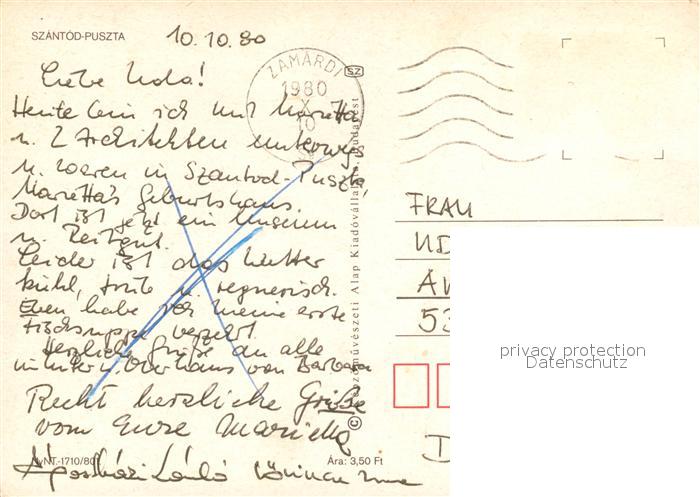 SZÁNTÓD-PUSZTA
10.10.80
Liebe Udla!
Heute bin ich mit Marietta
u. 2 Architekten unterwegs
u. waren in Szantod-Puszta,
Marietta's Geburtshaus.
Dort ist jetzt ein Museum
u. Reitgut.
Leider ist das Wetter
kühl, trüb u. regnerisch.
Eben habe ich meine erste
Fischsuppe verzehrt.
Herzliche Grüße an alle
im Unter u. Oberhaus von Barbara
Recht herzliche Grüße
vom Eure Marietta
László
NT.-1710/80
Ára: 3,50 Ft
ZAMÁRDI
1980
X
10
SZ
Képzőművészeti Alap Kiadóvállalata, Budapest
FRAU
UD
53
D
privacy protection
Datenschutz